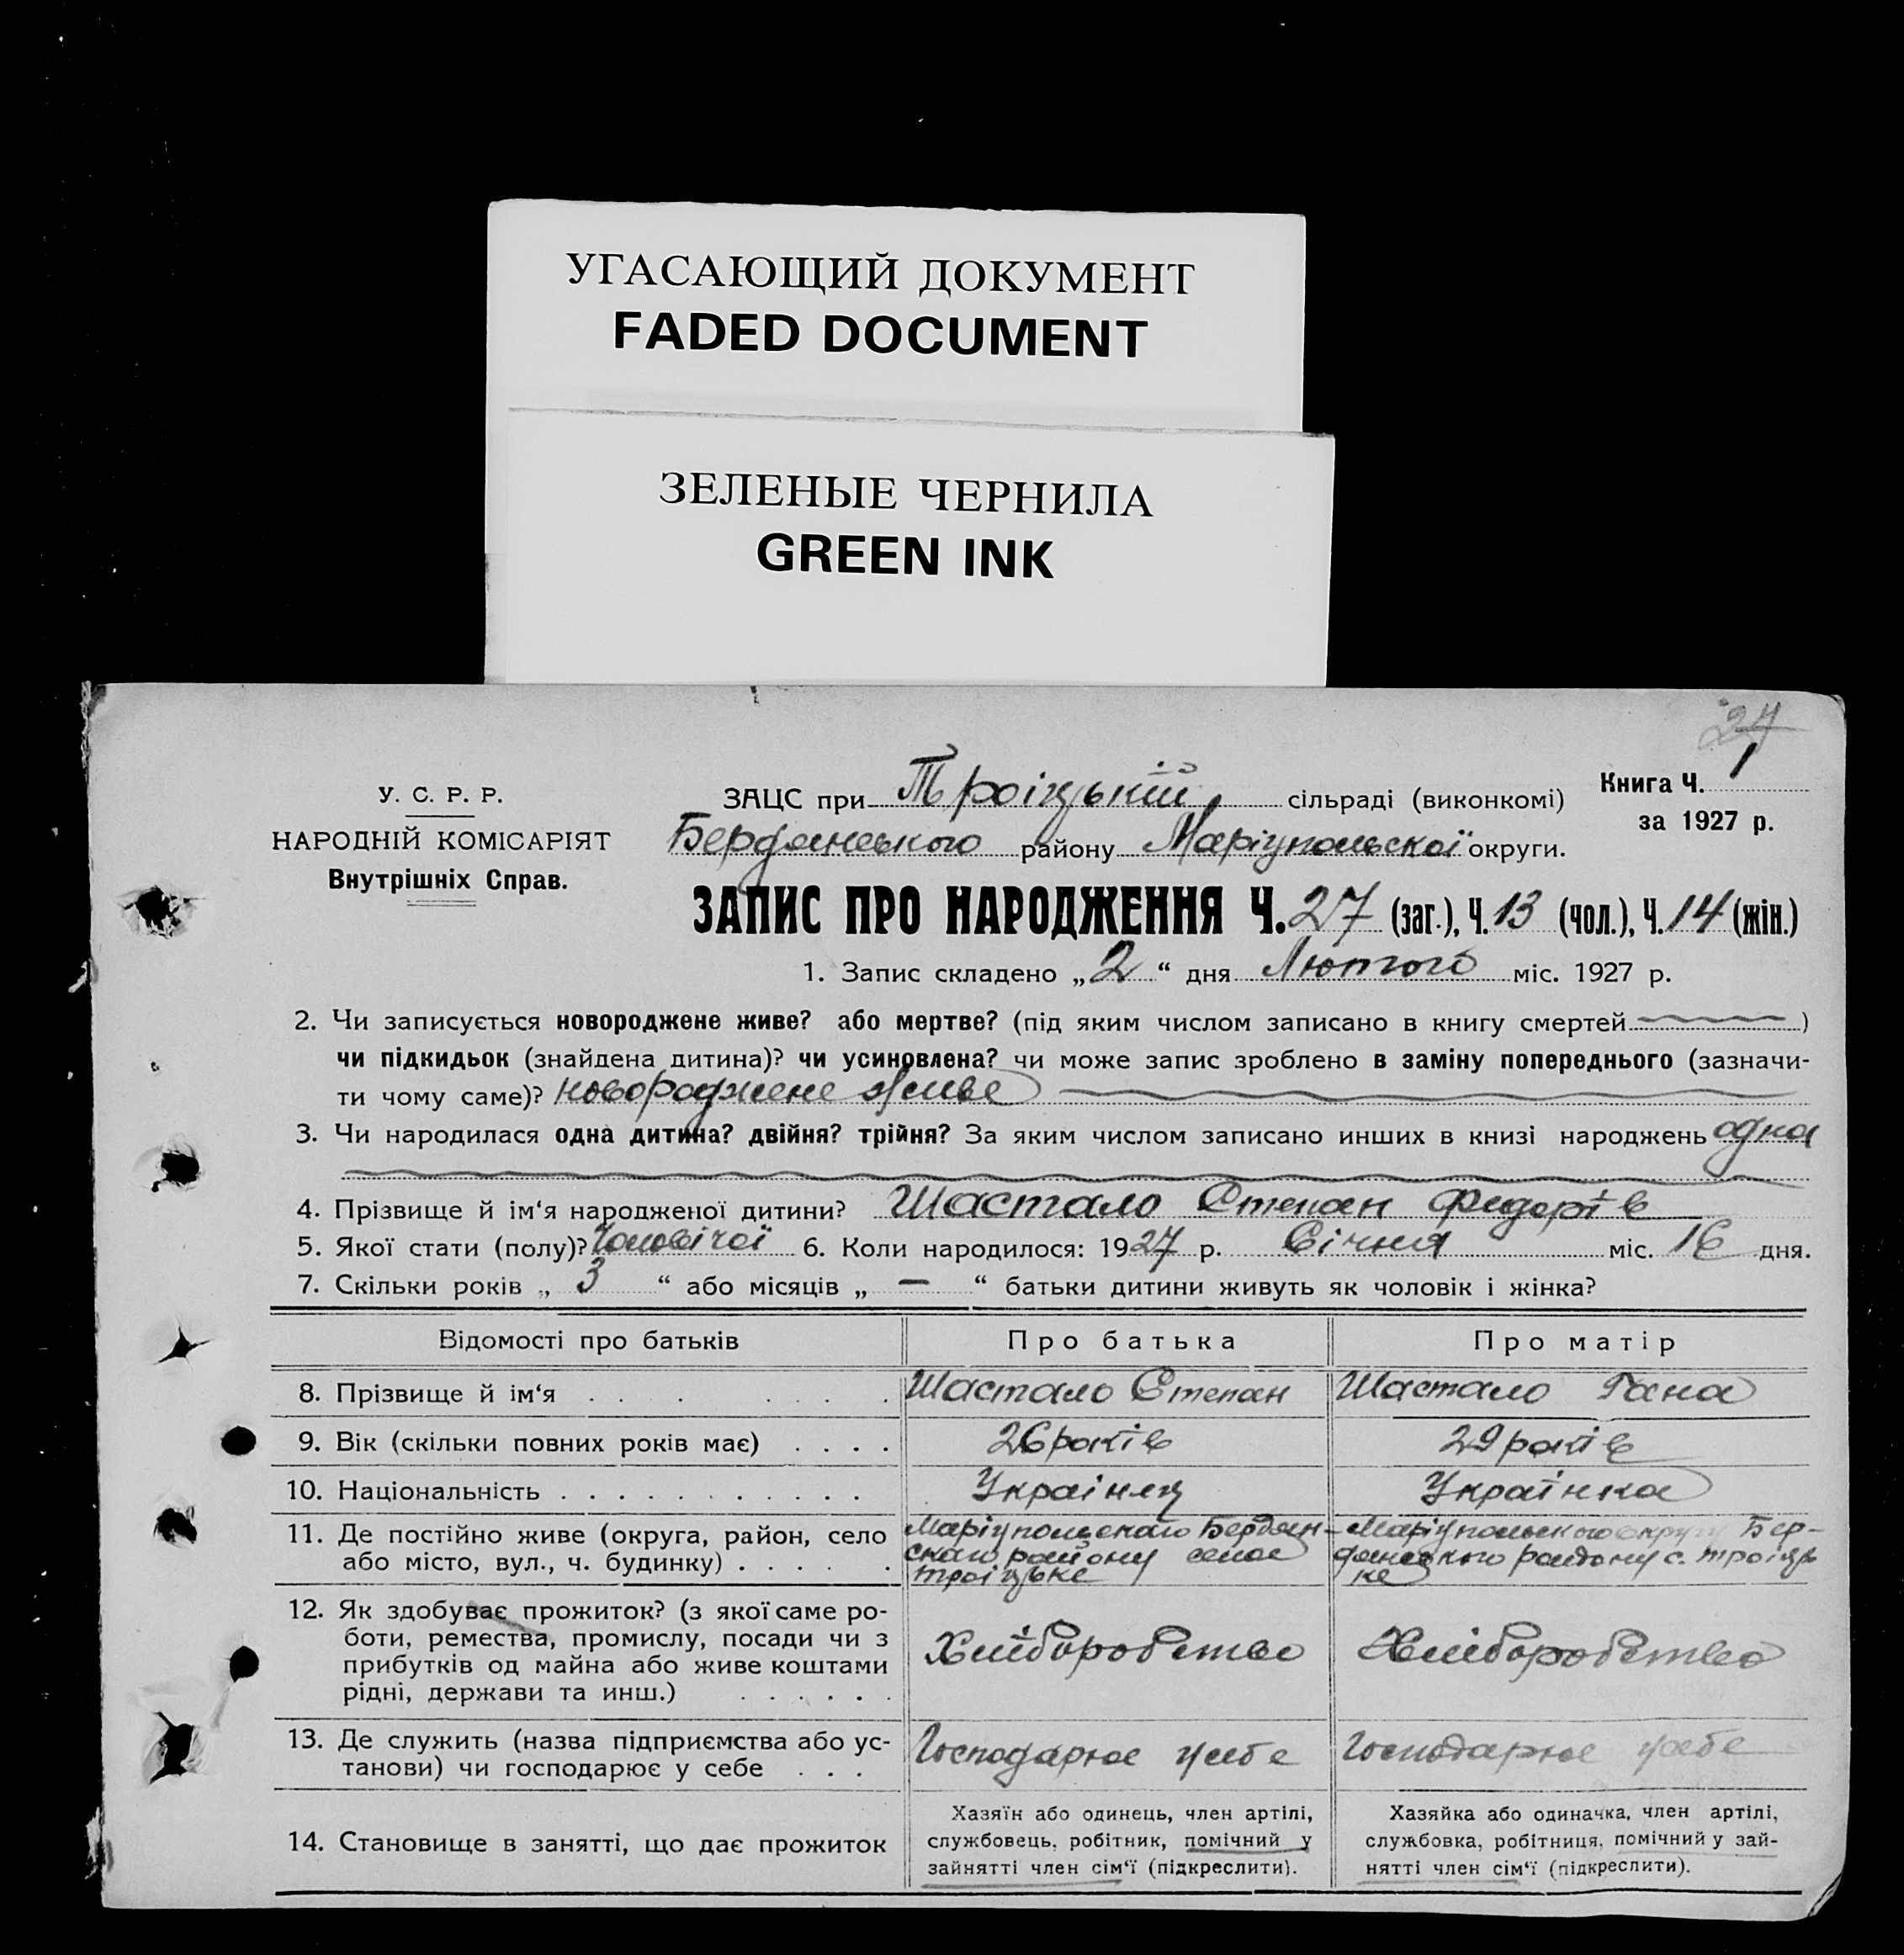 УГАСАЮЩИЙ ДОКУМЕНТ
FADED DOCUMENT
ЗЕЛЕНЫЕ ЧЕРНИЛА
GREEN INK
24
У. С. Р. Р.
НАРОДНІЙ КОМІСАРІЯТ
Внутрішніх Справ.
ЗАЦС при Троіцький сільраді (виконкомі)
Книга Ч. 1
за 1927 р.
Бердянського району Маріупольскої округи.
ЗАПИС ПРО НАРОДЖЕННЯ Ч. 27 (заг.), Ч. 13 (чол.), Ч. 14 (жін.)
1. Запис складено „2“ дня Лютого міс. 1927 р.
2. Чи записується новороджене живе? або мертве? (під яким числом записано в книгу смертей )
чи підкидьок (знайдена дитина)? чи усиновлена? чи може запис зроблено в заміну попереднього (зазначи-
ти чому саме)? новороджене живе
3. Чи народилася одна дитина? двійня? трійня? За яким числом записано инших в книзі народжень одна
4. Прізвище й ім‘я народженої дитини? Шастало Степан Федорів
5. Якої стати (полу)? Чоловічої 6. Коли народилося: 1927 р. Січня міс. 16 дня.
7. Скільки років „ 3 “ або місяців „ — “ батьки дитини живуть як чоловік і жінка?
Відомості про батьків Про батька Про матір
8. Прізвище й ім‘я . . . . . . . Шастало Степан Шастало Гана
9. Вік (скільки повних років має) . . . . 26 років 29 років
10. Національність . . . . . . . . . . . Украінец Українка
11. Де постійно живе (округа, район, село
або місто, вул., ч. будинку) . . . . .
Маріупольскаго Бердян-
скаго району село
троіцьке
Маріупольского округу Бер-
дянського району с. троіць
ке
12. Як здобуває прожиток? (з якої саме ро-
боти, ремества, промислу, посади чи з
прибутків од майна або живе коштами
рідні, держави та инш.) . . . . . .
Хліборобство
Хліборобство
13. Де служить (назва підприємства або ус-
танови) чи господарює у себе . . .
Господарює усебе
Господарює усебе
14. Становище в занятті, що дає прожиток
Хазяїн або одинець, член артілі,
службовець, робітник, помічний у
зайнятті член сім‘ї (підкреслити).
Хазяйка або одиначка, член артілі,
службовка, робітниця, помічний у зай-
нятті член сім‘ї (підкреслити).